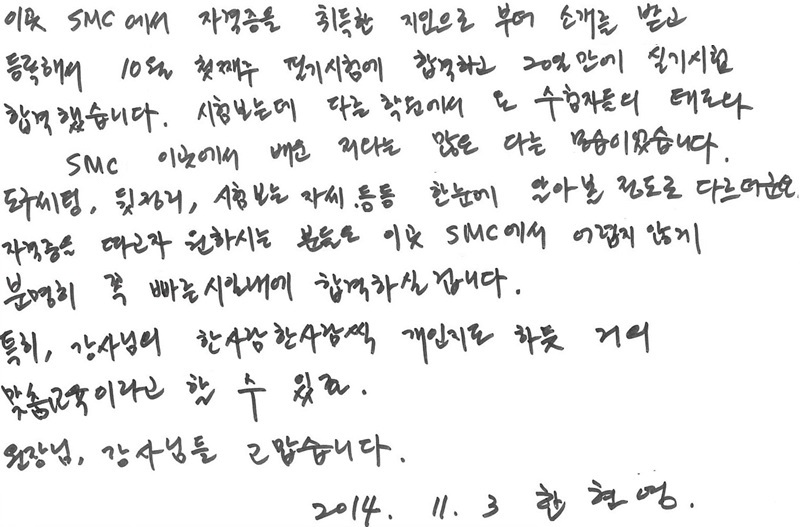 이곳 SMC에서 자격증을 취득한 지인으로 부터 소개를 받고
등록해서 10월 첫째주 필기시험에 합격하고 20일만에 실기시험
합격했습니다. 시험보는데 다른 학원에서 온 수험자들의 태도와
SMC 이곳에서 배운 저와는 많은 다른 모습이었습니다.
도구세팅, 뒷정리, 시험보는 자세.등등 한눈에 알아볼 정도로 다르더군요.
자격증을 따고자 원하시는 분들은 이곳 SMC에서 어렵지 않게
분명히 꼭 빠른시일내에 합격하실 겁니다.
특히, 강사님의 한사람한사람씩 개인지도 하듯 거의
맞춤교육이라고 할 수 있죠.
원장님, 강사님들 고맙습니다.
2014. 11. 3 한 현 영.